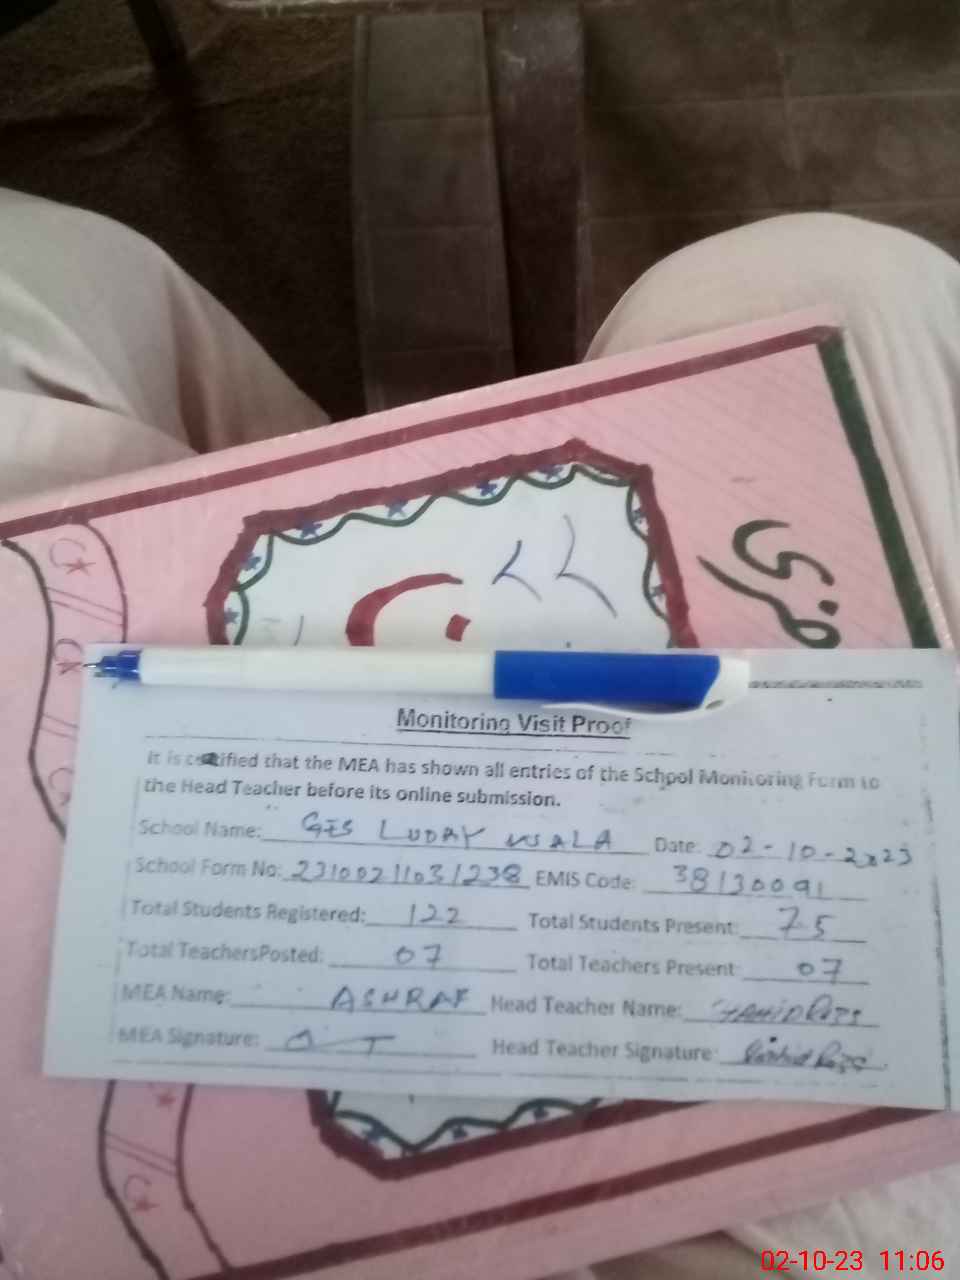 ضری
Monitoring Visit Proof
It is certified that the MEA has shown all entries of the School Monitoring Form to
the Head Teacher before its online submission.
School Name: GES LUDAY WALA Date: 02-10-2023
School Form No: 23100211031238 EMIS Code: 38130091
Total Students Registered: 122 Total Students Present: 75
Total TeachersPosted: 07 Total Teachers Present: 07
MEA Name: ASHRAF Head Teacher Name:
MEA Signature: Head Teacher Signature:
02-10-23 11:06